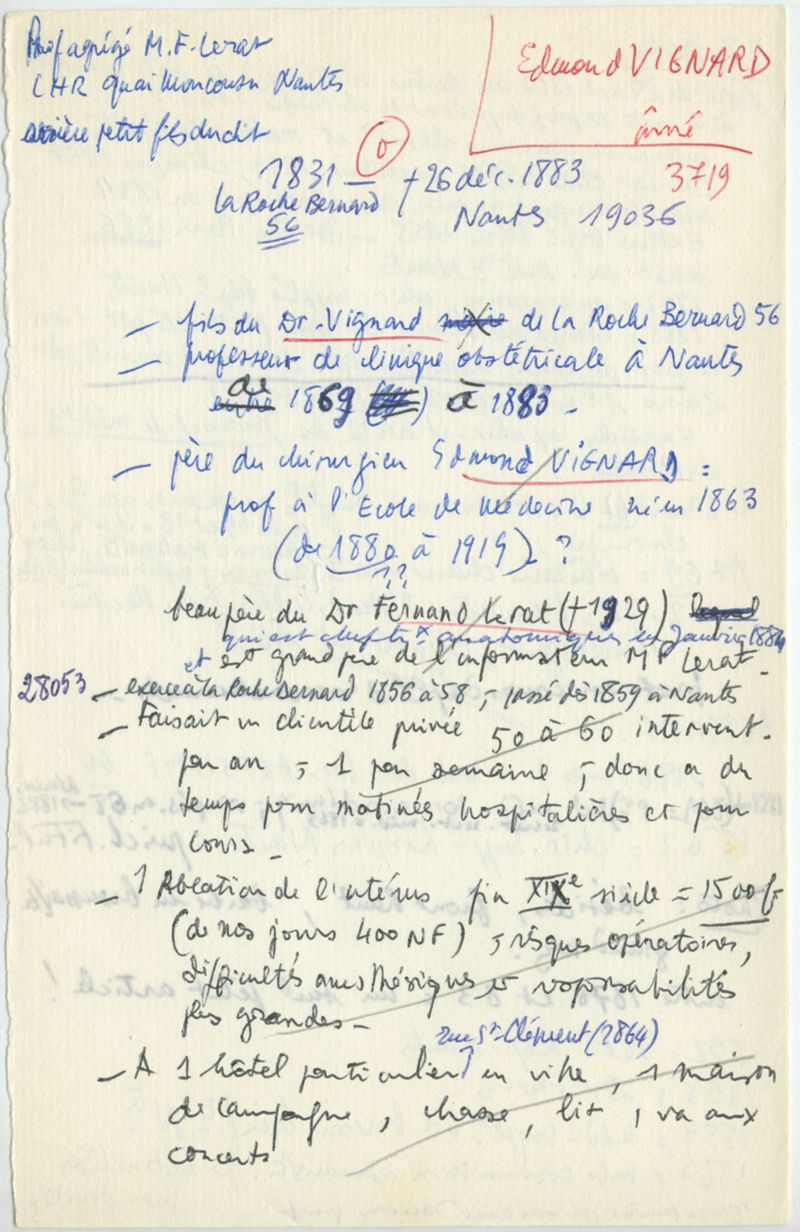 Prof agrégé M.F. Lerat
CHR quai Moncousu Nantes
arrière petit fils du dit
Edmond VIGNARD
aîné
3719
1831 — + 26 déc. 1883
la Roche Bernard Nantes 19036
56
— fils du Dr. Vignard de la Roche Bernard 56
— professeur de clinique obstétricale à Nantes
de 1869 à 1883 -
— père du chirurgien Edmond VIGNARD =
prof à l'Ecole de Médecine né en 1863
(de 1880 à 1919) - ?
??
beau père du Dr Fernand Lerat (+ 1929)
qui est chef trx anatomiques en Janvier 1884
et est grand père de l'informateur M F Lerat -
28053 — exerce à la Roche Bernard 1856 à 58 ; passé dès 1859 à Nantes
— Faisait en clientèle privée 50 à 60 intervent.
par an ; 1 par semaine ; donc a du
temps pour matinés hospitalières et pour
cours -
— 1 Ablation de l'utérus fin XIXe siècle = 1500 f
(de nos jours 400 NF) ; risques opératoires,
difficultés anesthésiques et responsabilités
plus grandes -
rue St Clément (1864)
— A 1 hôtel particulier en ville, 1 maison
de campagne, chasse, lit, va aux
concerts